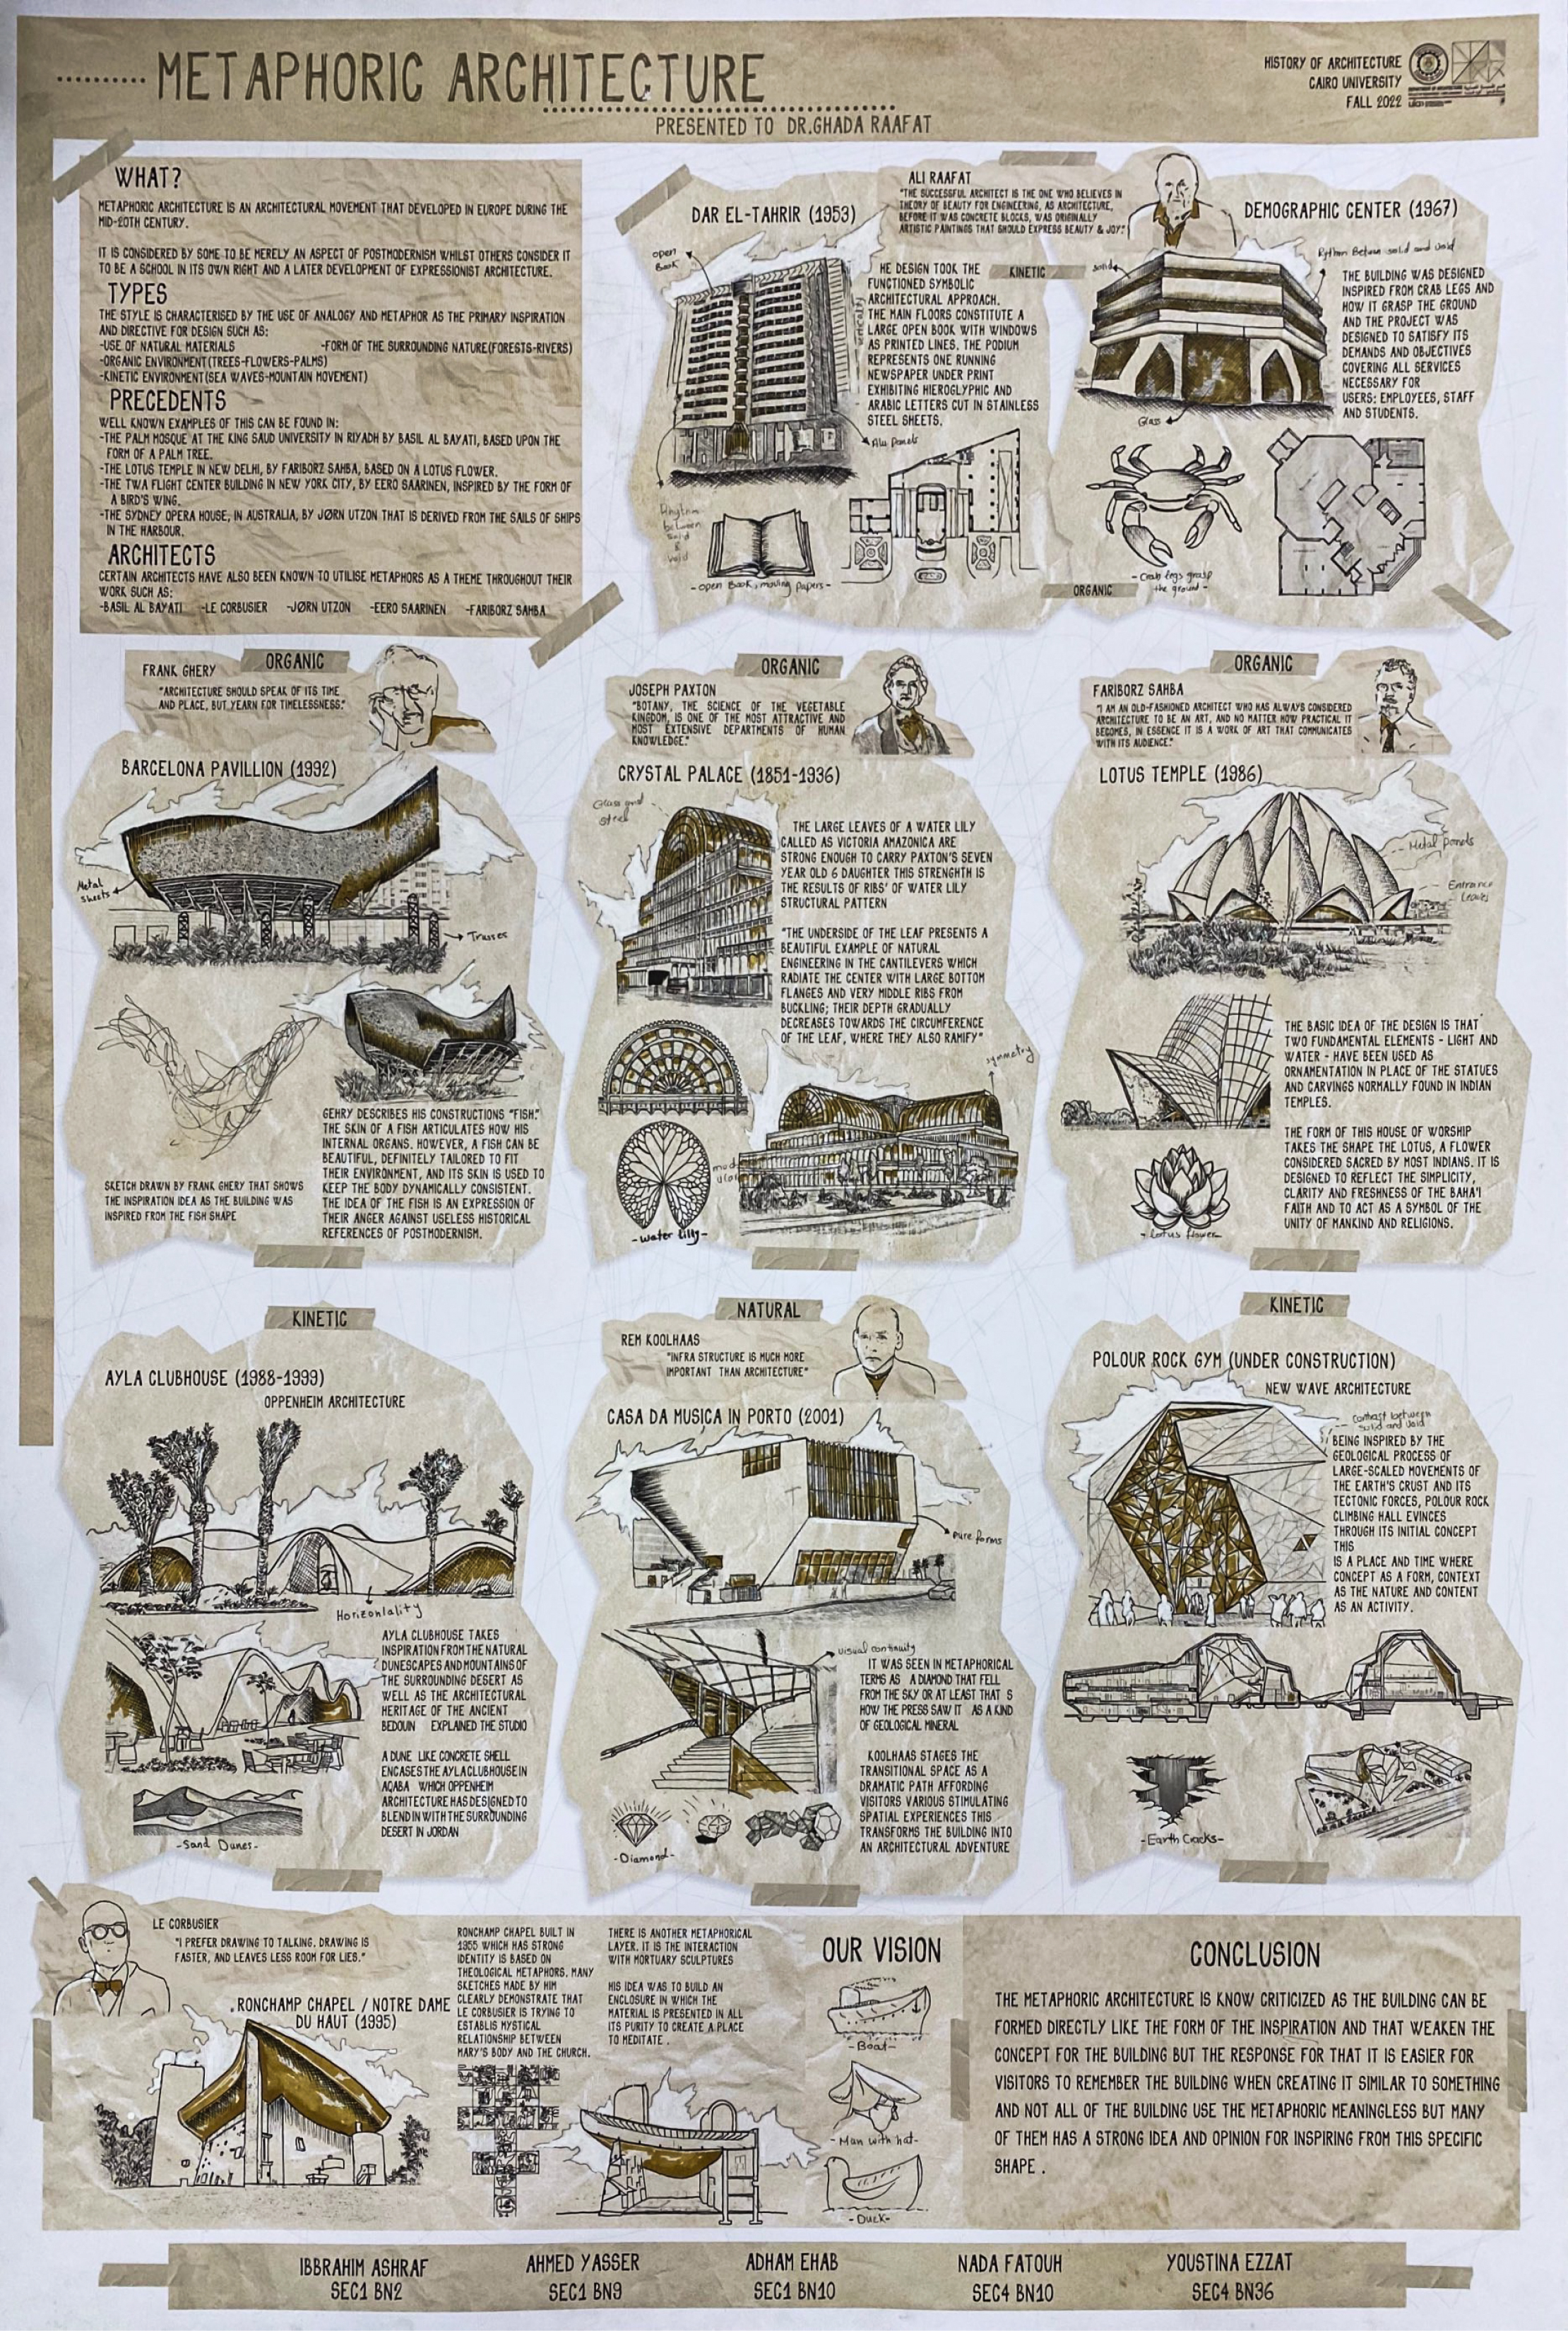 METAPHORIC ARCHITECTURE
PRESENTED TO DR.GHADA RAAFAT
HISTORY OF ARCHITECTURE
CAIRO UNIVERSITY
FALL 2022
WHAT?
METAPHORIC ARCHITECTURE IS AN ARCHITECTURAL MOVEMENT THAT DEVELOPED IN EUROPE DURING THE
MID-20TH CENTURY.
IT IS CONSIDERED BY SOME TO BE MERELY AN ASPECT OF POSTMODERNISM WHILST OTHERS CONSIDER IT
TO BE A SCHOOL IN ITS OWN RIGHT AND A LATER DEVELOPMENT OF EXPRESSIONIST ARCHITECTURE.
TYPES
THE STYLE IS CHARACTERISED BY THE USE OF ANALOGY AND METAPHOR AS THE PRIMARY INSPIRATION
AND DIRECTIVE FOR DESIGN SUCH AS:
-USE OF NATURAL MATERIALS -FORM OF THE SURROUNDING NATURE(FORESTS-RIVERS)
-ORGANIC ENVIRONMENT(TREES-FLOWERS-PALMS)
-KINETIC ENVIRONMENT(SEA WAVES-MOUNTAIN MOVEMENT)
PRECEDENTS
WELL KNOWN EXAMPLES OF THIS CAN BE FOUND IN:
-THE PALM MOSQUE AT THE KING SAUD UNIVERSITY IN RIYADH BY BASIL AL BAYATI, BASED UPON THE
FORM OF A PALM TREE.
-THE LOTUS TEMPLE IN NEW DELHI, BY FARIBORZ SAHBA, BASED ON A LOTUS FLOWER.
-THE TWA FLIGHT CENTER BUILDING IN NEW YORK CITY, BY EERO SAARINEN, INSPIRED BY THE FORM OF
A BIRD'S WING.
-THE SYDNEY OPERA HOUSE, IN AUSTRALIA, BY JØRN UTZON THAT IS DERIVED FROM THE SAILS OF SHIPS
IN THE HARBOUR.
ARCHITECTS
CERTAIN ARCHITECTS HAVE ALSO BEEN KNOWN TO UTILISE METAPHORS AS A THEME THROUGHOUT THEIR
WORK SUCH AS:
-BASIL AL BAYATI -LE CORBUSIER -JØRN UTZON -EERO SAARINEN -FARIBORZ SAHBA
ALI RAAFAT
"THE SUCCESSFUL ARCHITECT IS THE ONE WHO BELIEVES IN
THEORY OF BEAUTY FOR ENGINEERING, AS ARCHITECTURE,
BEFORE IT WAS CONCRETE BLOCKS, WAS ORIGINALLY
ARTISTIC PAINTINGS THAT SHOULD EXPRESS BEAUTY & JOY."
DAR EL-TAHRIR (1953)
open
Book
KINETIC
HE DESIGN TOOK THE
FUNCTIONED SYMBOLIC
ARCHITECTURAL APPROACH.
THE MAIN FLOORS CONSTITUTE A
LARGE OPEN BOOK WITH WINDOWS
AS PRINTED LINES. THE PODIUM
REPRESENTS ONE RUNNING
NEWSPAPER UNDER PRINT
EXHIBITING HIEROGLYPHIC AND
ARABIC LETTERS CUT IN STAINLESS
STEEL SHEETS.
Alu panels
Rhythm
between
solid
&
void
-open Book, moving papers-
DEMOGRAPHIC CENTER (1967)
Rythom Between solid and void
solid
THE BUILDING WAS DESIGNED
INSPIRED FROM CRAB LEGS AND
HOW IT GRASP THE GROUND
AND THE PROJECT WAS
DESIGNED TO SATISFY ITS
DEMANDS AND OBJECTIVES
COVERING ALL SERVICES
NECESSARY FOR
USERS: EMPLOYEES, STAFF
AND STUDENTS.
Glass
-Crab legs grasp
the ground-
ORGANIC
ORGANIC
FRANK GHERY
"ARCHITECTURE SHOULD SPEAK OF ITS TIME
AND PLACE, BUT YEARN FOR TIMELESSNESS."
BARCELONA PAVILLION (1992)
Metal
sheets
Trusses
SKETCH DRAWN BY FRANK GHERY THAT SHOWS
THE INSPIRATION IDEA AS THE BUILDING WAS
INSPIRED FROM THE FISH SHAPE
GEHRY DESCRIBES HIS CONSTRUCTIONS "FISH."
THE SKIN OF A FISH ARTICULATES HOW HIS
INTERNAL ORGANS. HOWEVER, A FISH CAN BE
BEAUTIFUL, DEFINITELY TAILORED TO FIT
THEIR ENVIRONMENT, AND ITS SKIN IS USED TO
KEEP THE BODY DYNAMICALLY CONSISTENT.
THE IDEA OF THE FISH IS AN EXPRESSION OF
THEIR ANGER AGAINST USELESS HISTORICAL
REFERENCES OF POSTMODERNISM.
ORGANIC
JOSEPH PAXTON
"BOTANY, THE SCIENCE OF THE VEGETABLE
KINGDOM, IS ONE OF THE MOST ATTRACTIVE AND
MOST EXTENSIVE DEPARTMENTS OF HUMAN
KNOWLEDGE."
CRYSTAL PALACE (1851-1936)
Glass and
steel
THE LARGE LEAVES OF A WATER LILY
CALLED AS VICTORIA AMAZONICA ARE
STRONG ENOUGH TO CARRY PAXTON'S SEVEN
YEAR OLD 6 DAUGHTER THIS STRENGHTH IS
THE RESULTS OF RIBS' OF WATER LILY
STRUCTURAL PATTERN
"THE UNDERSIDE OF THE LEAF PRESENTS A
BEAUTIFUL EXAMPLE OF NATURAL
ENGINEERING IN THE CANTILEVERS WHICH
RADIATE THE CENTER WITH LARGE BOTTOM
FLANGES AND VERY MIDDLE RIBS FROM
BUCKLING; THEIR DEPTH GRADUALLY
DECREASES TOWARDS THE CIRCUMFERENCE
OF THE LEAF, WHERE THEY ALSO RAMIFY"
symmetry
-water lilly-
ORGANIC
FARIBORZ SAHBA
"I AM AN OLD-FASHIONED ARCHITECT WHO HAS ALWAYS CONSIDERED
ARCHITECTURE TO BE AN ART, AND NO MATTER HOW PRACTICAL IT
BECOMES, IN ESSENCE IT IS A WORK OF ART THAT COMMUNICATES
WITH ITS AUDIENCE."
LOTUS TEMPLE (1986)
Metal panels
Entrance
Leaves
THE BASIC IDEA OF THE DESIGN IS THAT
TWO FUNDAMENTAL ELEMENTS - LIGHT AND
WATER - HAVE BEEN USED AS
ORNAMENTATION IN PLACE OF THE STATUES
AND CARVINGS NORMALLY FOUND IN INDIAN
TEMPLES.
THE FORM OF THIS HOUSE OF WORSHIP
TAKES THE SHAPE THE LOTUS, A FLOWER
CONSIDERED SACRED BY MOST INDIANS. IT IS
DESIGNED TO REFLECT THE SIMPLICITY,
CLARITY AND FRESHNESS OF THE BAHA'I
FAITH AND TO ACT AS A SYMBOL OF THE
UNITY OF MANKIND AND RELIGIONS.
-Lotus flower-
KINETIC
AYLA CLUBHOUSE (1988-1999)
OPPENHEIM ARCHITECTURE
Horizontality
AYLA CLUBHOUSE TAKES
INSPIRATION FROM THE NATURAL
DUNESCAPES AND MOUNTAINS OF
THE SURROUNDING DESERT AS
WELL AS THE ARCHITECTURAL
HERITAGE OF THE ANCIENT
BEDOUN EXPLAINED THE STUDIO
A DUNE LIKE CONCRETE SHELL
ENCASES THE AYLA CLUBHOUSE IN
AQABA WHICH OPPENHEIM
ARCHITECTURE HAS DESIGNED TO
BLEND IN WITH THE SURROUNDING
DESERT IN JORDAN
-Sand Dunes-
NATURAL
REM KOOLHAAS
"INFRA STRUCTURE IS MUCH MORE
IMPORTANT THAN ARCHITECTURE"
CASA DA MUSICA IN PORTO (2001)
pure forms
visual continuity
IT WAS SEEN IN METAPHORICAL
TERMS AS A DIAMOND THAT FELL
FROM THE SKY OR AT LEAST THAT S
HOW THE PRESS SAW IT AS A KIND
OF GEOLOGICAL MINERAL
KOOLHAAS STAGES THE
TRANSITIONAL SPACE AS A
DRAMATIC PATH AFFORDING
VISITORS VARIOUS STIMULATING
SPATIAL EXPERIENCES THIS
TRANSFORMS THE BUILDING INTO
AN ARCHITECTURAL ADVENTURE
-Diamond-
KINETIC
POLOUR ROCK GYM (UNDER CONSTRUCTION)
NEW WAVE ARCHITECTURE
contrast between
solid and void
BEING INSPIRED BY THE
GEOLOGICAL PROCESS OF
LARGE-SCALED MOVEMENTS OF
THE EARTH'S CRUST AND ITS
TECTONIC FORCES, POLOUR ROCK
CLIMBING HALL EVINCES
THROUGH ITS INITIAL CONCEPT
THIS
IS A PLACE AND TIME WHERE
CONCEPT AS A FORM, CONTEXT
AS THE NATURE AND CONTENT
AS AN ACTIVITY.
-Earth Cracks-
LE CORBUSIER
"I PREFER DRAWING TO TALKING. DRAWING IS
FASTER, AND LEAVES LESS ROOM FOR LIES."
RONCHAMP CHAPEL / NOTRE DAME
DU HAUT (1995)
RONCHAMP CHAPEL BUILT IN
1955 WHICH HAS STRONG
IDENTITY IS BASED ON
THEOLOGICAL METAPHORS. MANY
SKETCHES MADE BY HIM
CLEARLY DEMONSTRATE THAT
LE CORBUSIER IS TRYING TO
ESTABLIS MYSTICAL
RELATIONSHIP BETWEEN
MARY'S BODY AND THE CHURCH.
THERE IS ANOTHER METAPHORICAL
LAYER. IT IS THE INTERACTION
WITH MORTUARY SCULPTURES
HIS IDEA WAS TO BUILD AN
ENCLOSURE IN WHICH THE
MATERIAL IS PRESENTED IN ALL
ITS PURITY TO CREATE A PLACE
TO MEDITATE .
OUR VISION
-Boat-
-Man with hat-
-Duck-
CONCLUSION
THE METAPHORIC ARCHITECTURE IS KNOW CRITICIZED AS THE BUILDING CAN BE
FORMED DIRECTLY LIKE THE FORM OF THE INSPIRATION AND THAT WEAKEN THE
CONCEPT FOR THE BUILDING BUT THE RESPONSE FOR THAT IT IS EASIER FOR
VISITORS TO REMEMBER THE BUILDING WHEN CREATING IT SIMILAR TO SOMETHING
AND NOT ALL OF THE BUILDING USE THE METAPHORIC MEANINGLESS BUT MANY
OF THEM HAS A STRONG IDEA AND OPINION FOR INSPIRING FROM THIS SPECIFIC
SHAPE .
IBBRAHIM ASHRAF
SEC1 BN2
AHMED YASSER
SEC1 BN9
ADHAM EHAB
SEC1 BN10
NADA FATOUH
SEC4 BN10
YOUSTINA EZZAT
SEC4 BN36